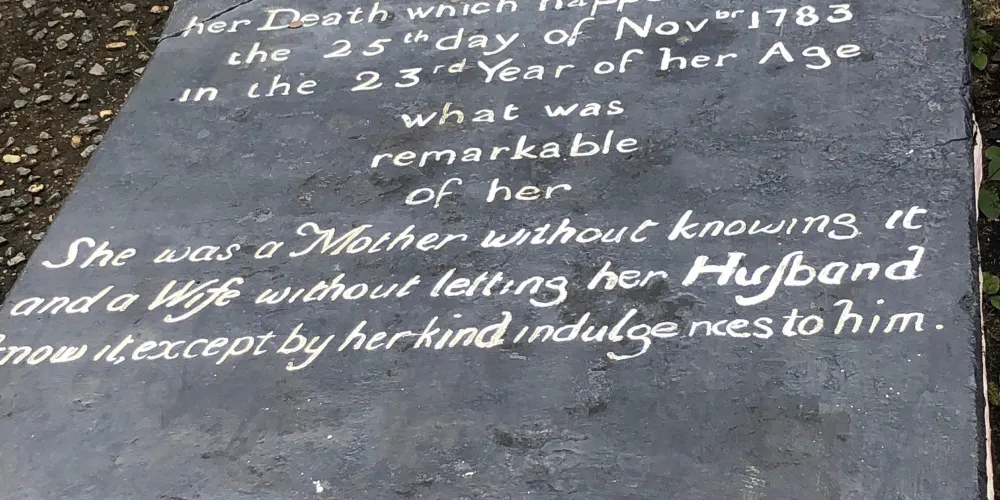 her Death which happ
the 25th day of Novbr 1783
in the 23rd Year of her Age
what was
remarkable
of her
She was a Mother without knowing it
and a Wife without letting her Huſband
know it, except by her kind indulgences to him.